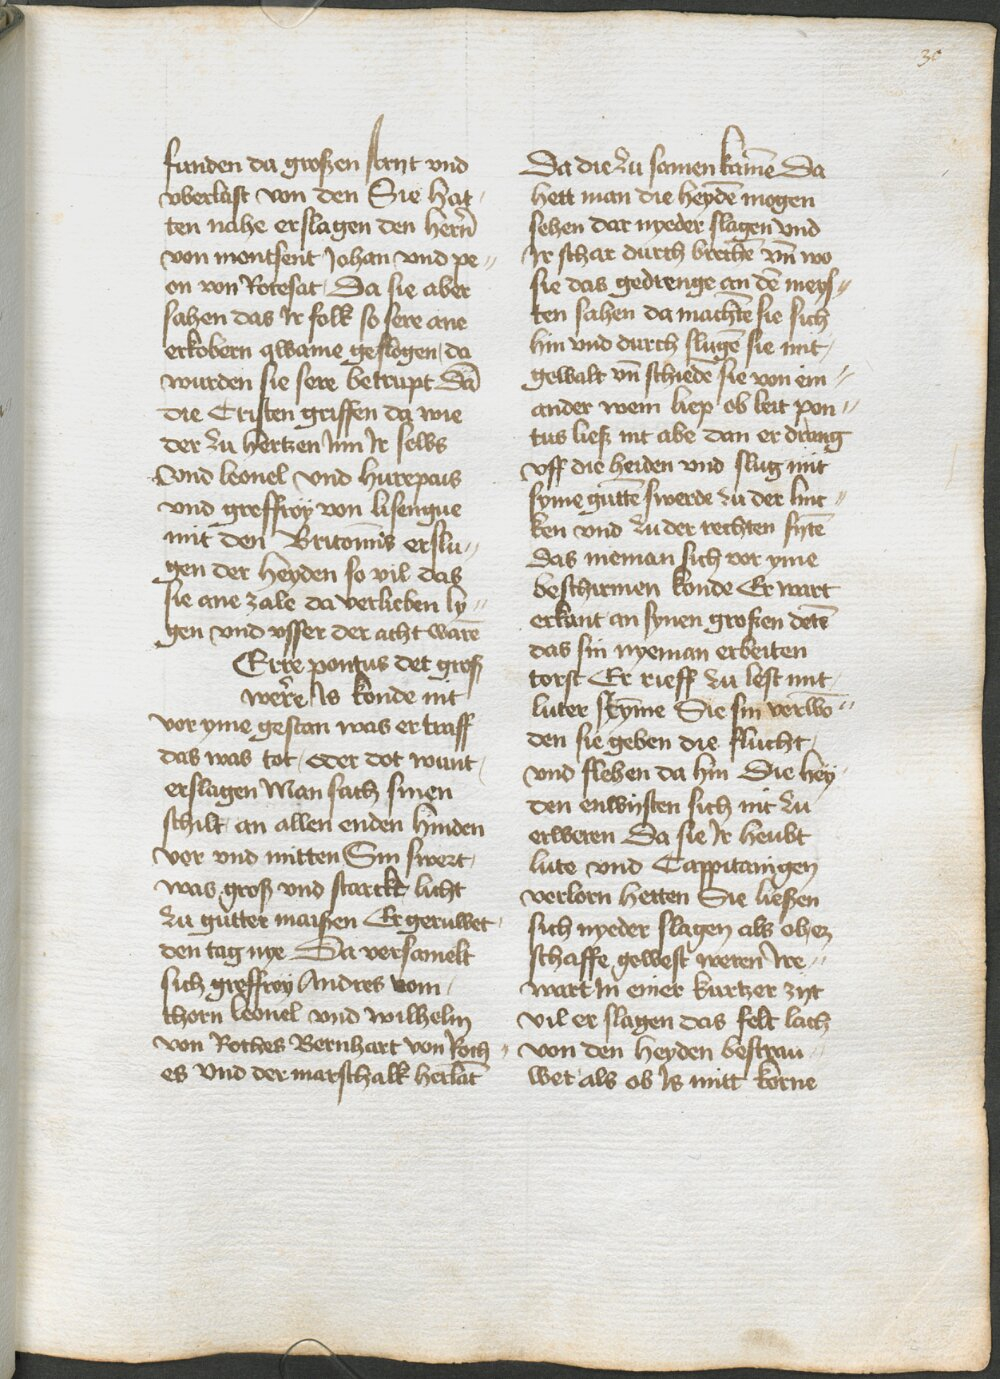 30
funden da großen stryt vnd
vberlast von den Sie hat,
ten nahe erslagen den hern̄
von montsent Johan vnd pe〃
on von Rotesat Da sie aber
sahen das Jr folk so sere ane
erkobern qwame geslogen, da
wurden sie sere betrupt Dā
die Cristen griffen da wie
der zu hertzen Jnn Jr selbs
Vnd leonel vnd hurepaus
vnd greffroy von lisengue
mit den Britonīs erslu〃
gen der heyden so vil das
sie ane zale da verlieben ly〃
gen vnd vsser der acht warē
Erre pontus det groß
were, Js konde nit
vor yme gestan was er traff
das was tot, oder dot wunt,
erslagen Man sach sinen
schilt an allen enden hinden
vor vnd mitten Sin swert,
was groß vnd starckt licht
zu gutter maißen Er geruwet,
den tag nye Da versamelt
sich greffroy Andres vom,
thorn leonel vnd wilhelm
von Roches Bernhart von Roch〃
es vnd der marschalk herlāt
Da die zu samen kamē Da
hett man die heydē mogen
sehen dar nyeder slagen vnd
Jr schar durch brechē vn̄ wo
sie das gedrenge an dē meys〃
ten sahen da machtē sie sich
hin vnd durch slugē sie mit,
gewalt vn̄ schiedē sie von ein〃
ander wem liep ob leit pon〃
tus ließ nit abe dan er drang
vff die heiden vnd slug mit
syme guttē swerde zu der linc〃
ken vnd zu der rechten sytē
das nieman sich vor yme
beschirmen konde Er wart
erkant an synen großen detē
das sin nyeman erbeiten
torst Er rieff zu lest mit,
luter stȳme Sie sin verwō〃
den sie geben die flucht,
vnd flehen da hin Die hey,
den enwisten sich nit zu
erweren Da sie Jr heubt
lute vnd Cappitanigen
verlorn hetten Sie ließen
sich nyeder slagen als ob ez
schaffe gewest weren Jre〃
wart Jn einer kurtzer zijt
vil er slagen das felt lach
von den heyden bestrau〃
wet als ob Js mitt korne